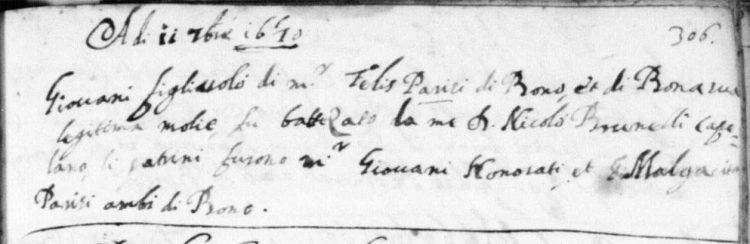 A di 11 7bre 1670 306.
Giovani figliuolo di m.r Felis Parisi di Bono, et di Bona sua
legitima molie, fu battezato da me D. Nicolò Brunelli Cape=
lano, li patrini furono m.r Giovani Honorati, et Malga
Parisi ambi di Bono.